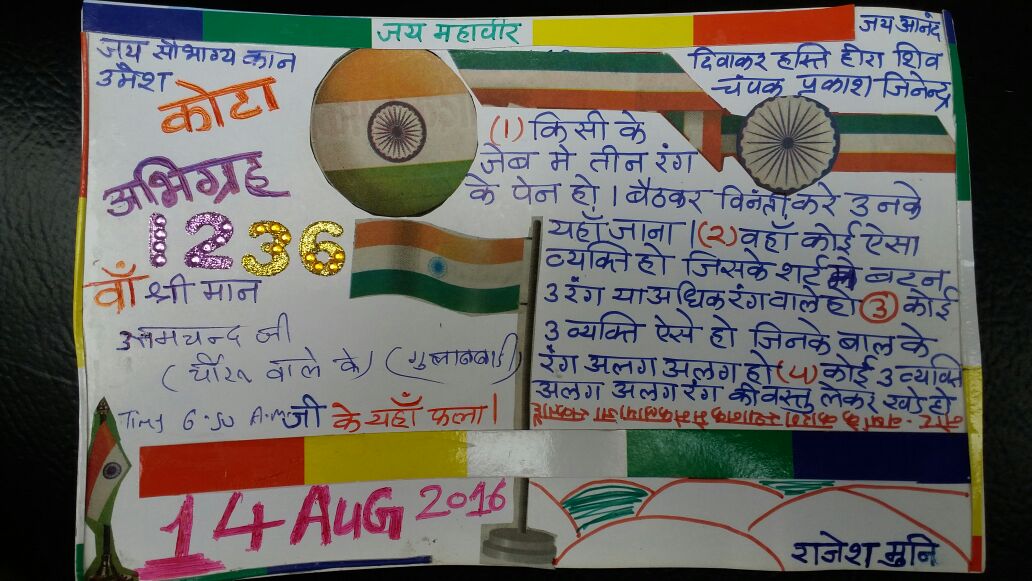 जय महावीर
जय आनंद
जय सौभाग्य कान
उमेश
दिवाकर हस्ति हीरा शिव
चंपक प्रकाश जिनेन्द्र
कोटा
अभिग्रह
1236
वाँ श्री मान
जी
वाले के)
Time 6-50 A.M जी के यहाँ फला।
(1) किसी के
जेब मे तीन रंग
के पेन हो। बैठकर विनंती करे उनके
यहाँ जाना। (२) वहाँ कोई ऐसा
व्यक्ति हो जिसके शर्ट के बटन
3 रंग या अधिक रंग वाले हो (3) कोई
3 व्यक्ति ऐसे हो जिनके बाल के
रंग अलग अलग हो (५) कोई 3 व्यक्ति
अलग अलग रंग की वस्तु लेकर खडे हो
14 AUG 2016
राजेश मुनि